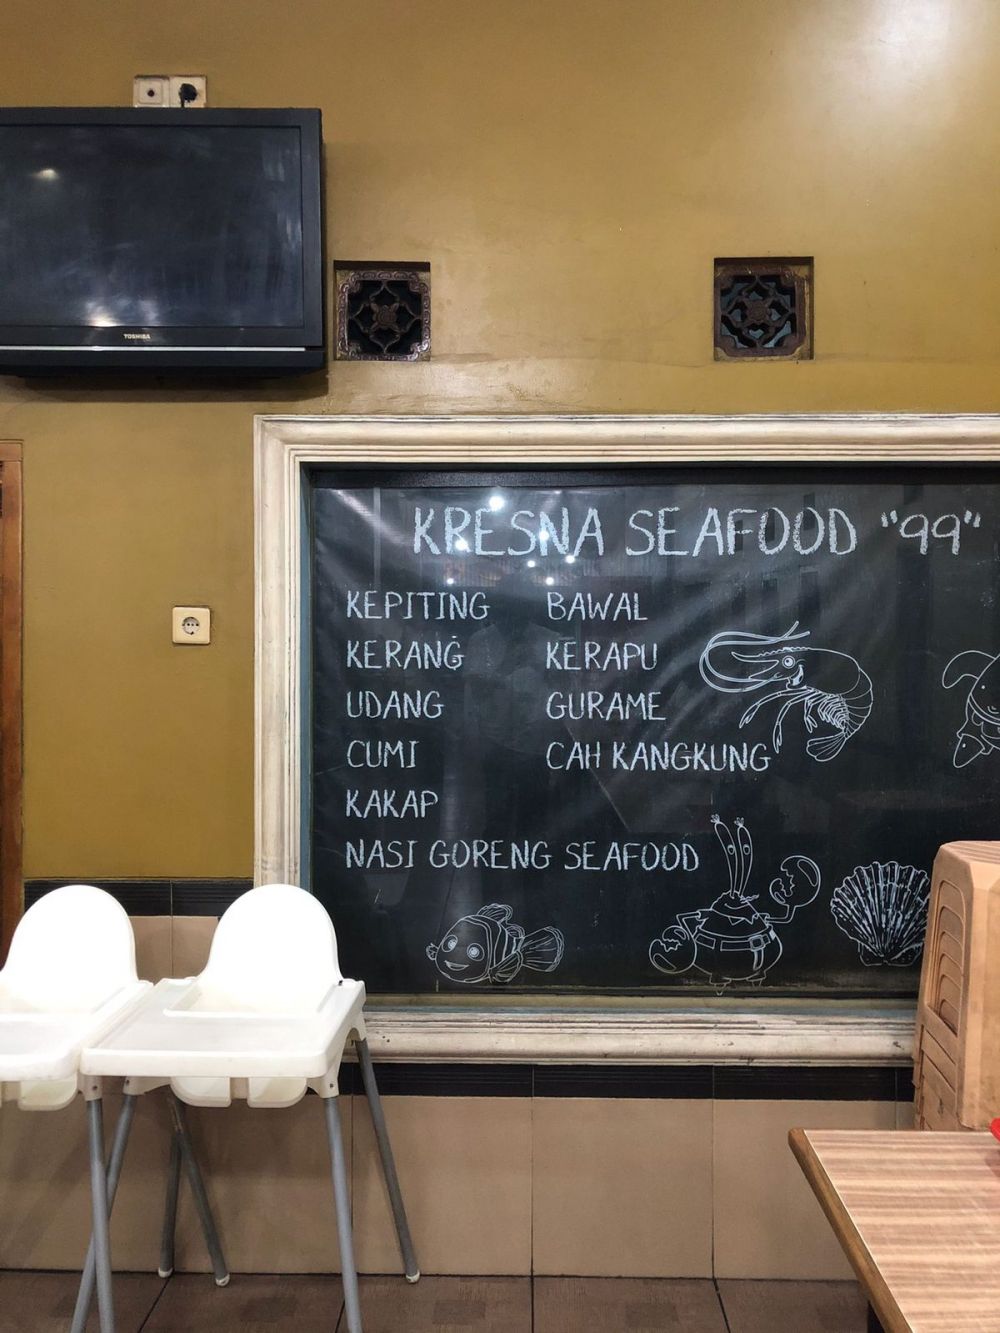 TOSHIBA
KRESNA SEAFOOD "99"
KEPITING
KERANG
UDANG
CUMI
KAKAP
NASI GORENG SEAFOOD
BAWAL
KERAPU
GURAME
CAH KANGKUNG